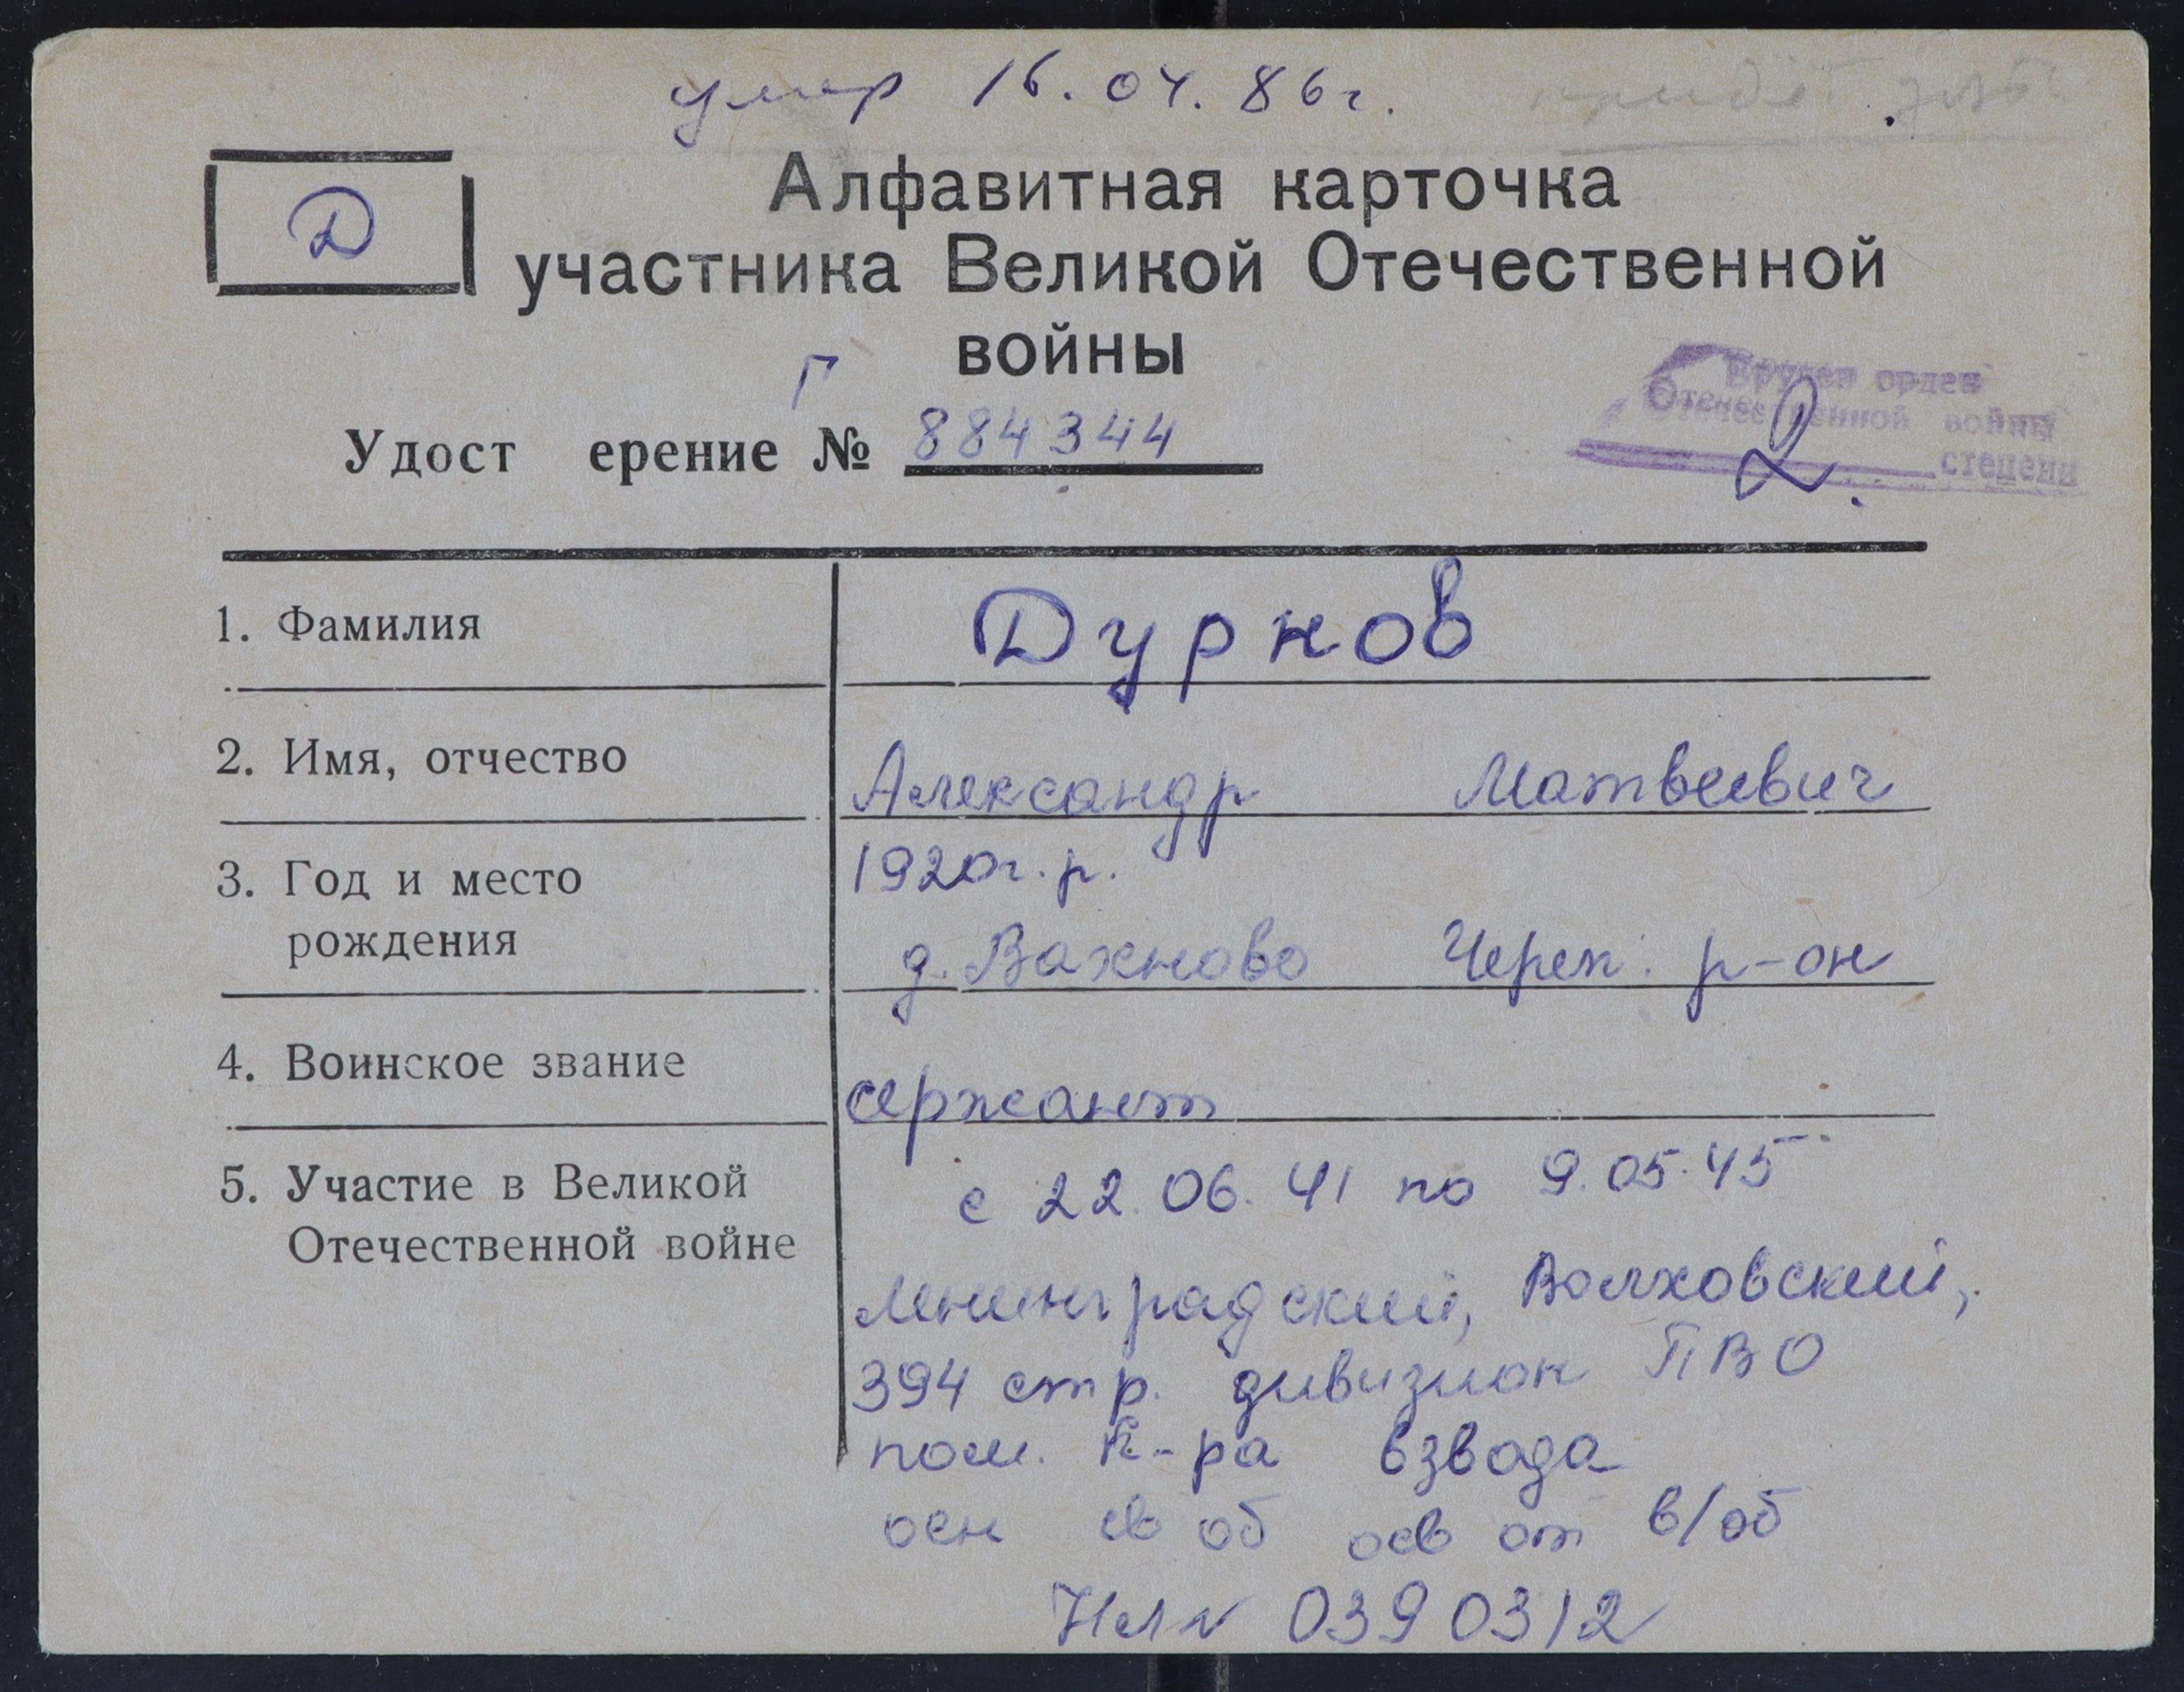 умер 16.04.86г.
Д
Алфавитная карточка
участника Великой Отечественной
войны
Г
Удост ерение № 884344
Вручен орден
Отечественной войны
2. степени
1. Фамилия
Дурнов
2. Имя, отчество
Александр Матвеевич
3. Год и место
рождения
1920г.р.
д. Вахново Череп. р-он
4. Воинское звание
сержант
5. Участие в Великой
Отечественной войне
с 22.06.41 по 9.05.45
Ленинградский, Волховский,
394 стр. дивизион ПВО
пом. к-ра взвода
осн св об осв от в/об
НЛ № 0390312